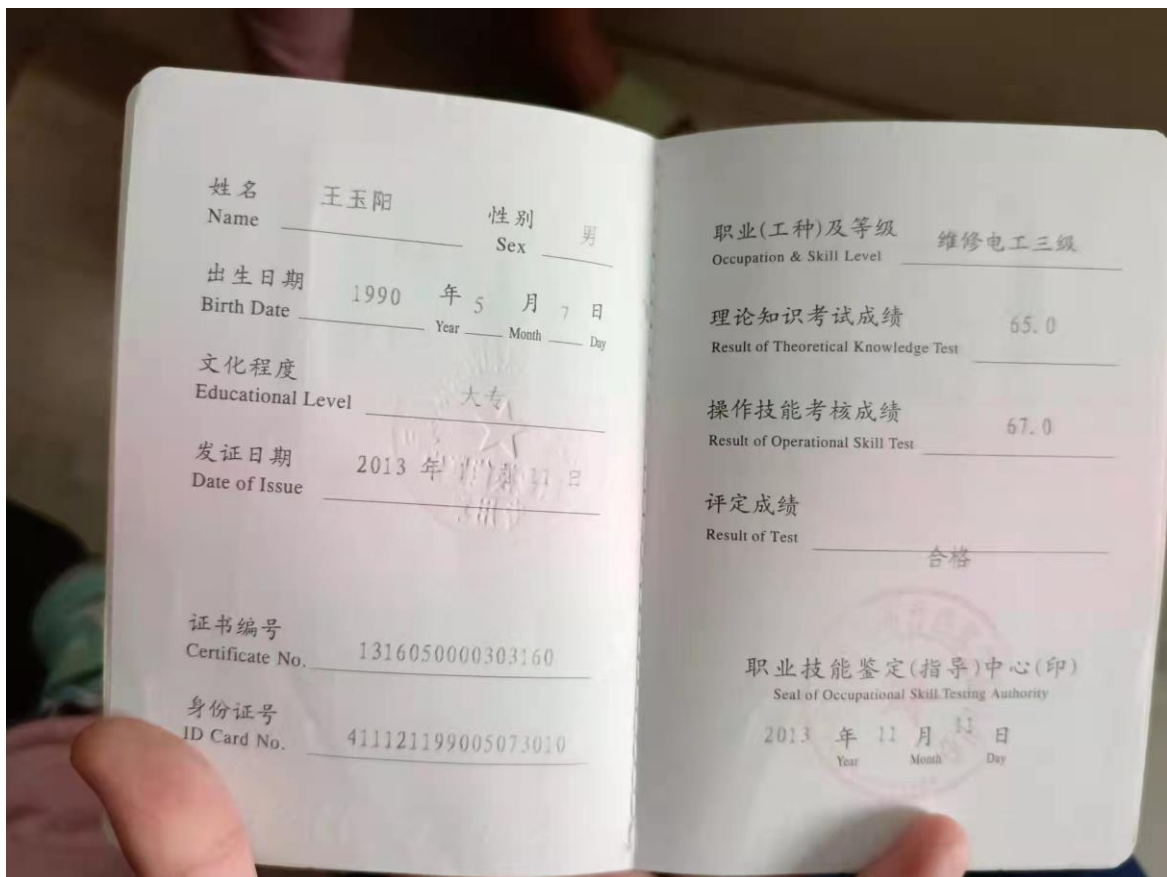 姓名 王玉阳 性别 男
Name Sex
出生日期 1990 年 5 月 7 日
Birth Date Year Month Day
文化程度 大专
Educational Level
发证日期 2013 年 11 日
Date of Issue
证书编号 1316050000303160
Certificate No.
身份证号 411121199005073010
ID Card No.
职业(工种)及等级 维修电工三级
Occupation & Skill Level
理论知识考试成绩 65.0
Result of Theoretical Knowledge Test
操作技能考核成绩 67.0
Result of Operational Skill Test
评定成绩
Result of Test
合格
职业技能鉴定(指导)中心(印)
Seal of Occupational Skill Testing Authority
2013 年 11 月 11 日
Year Month Day